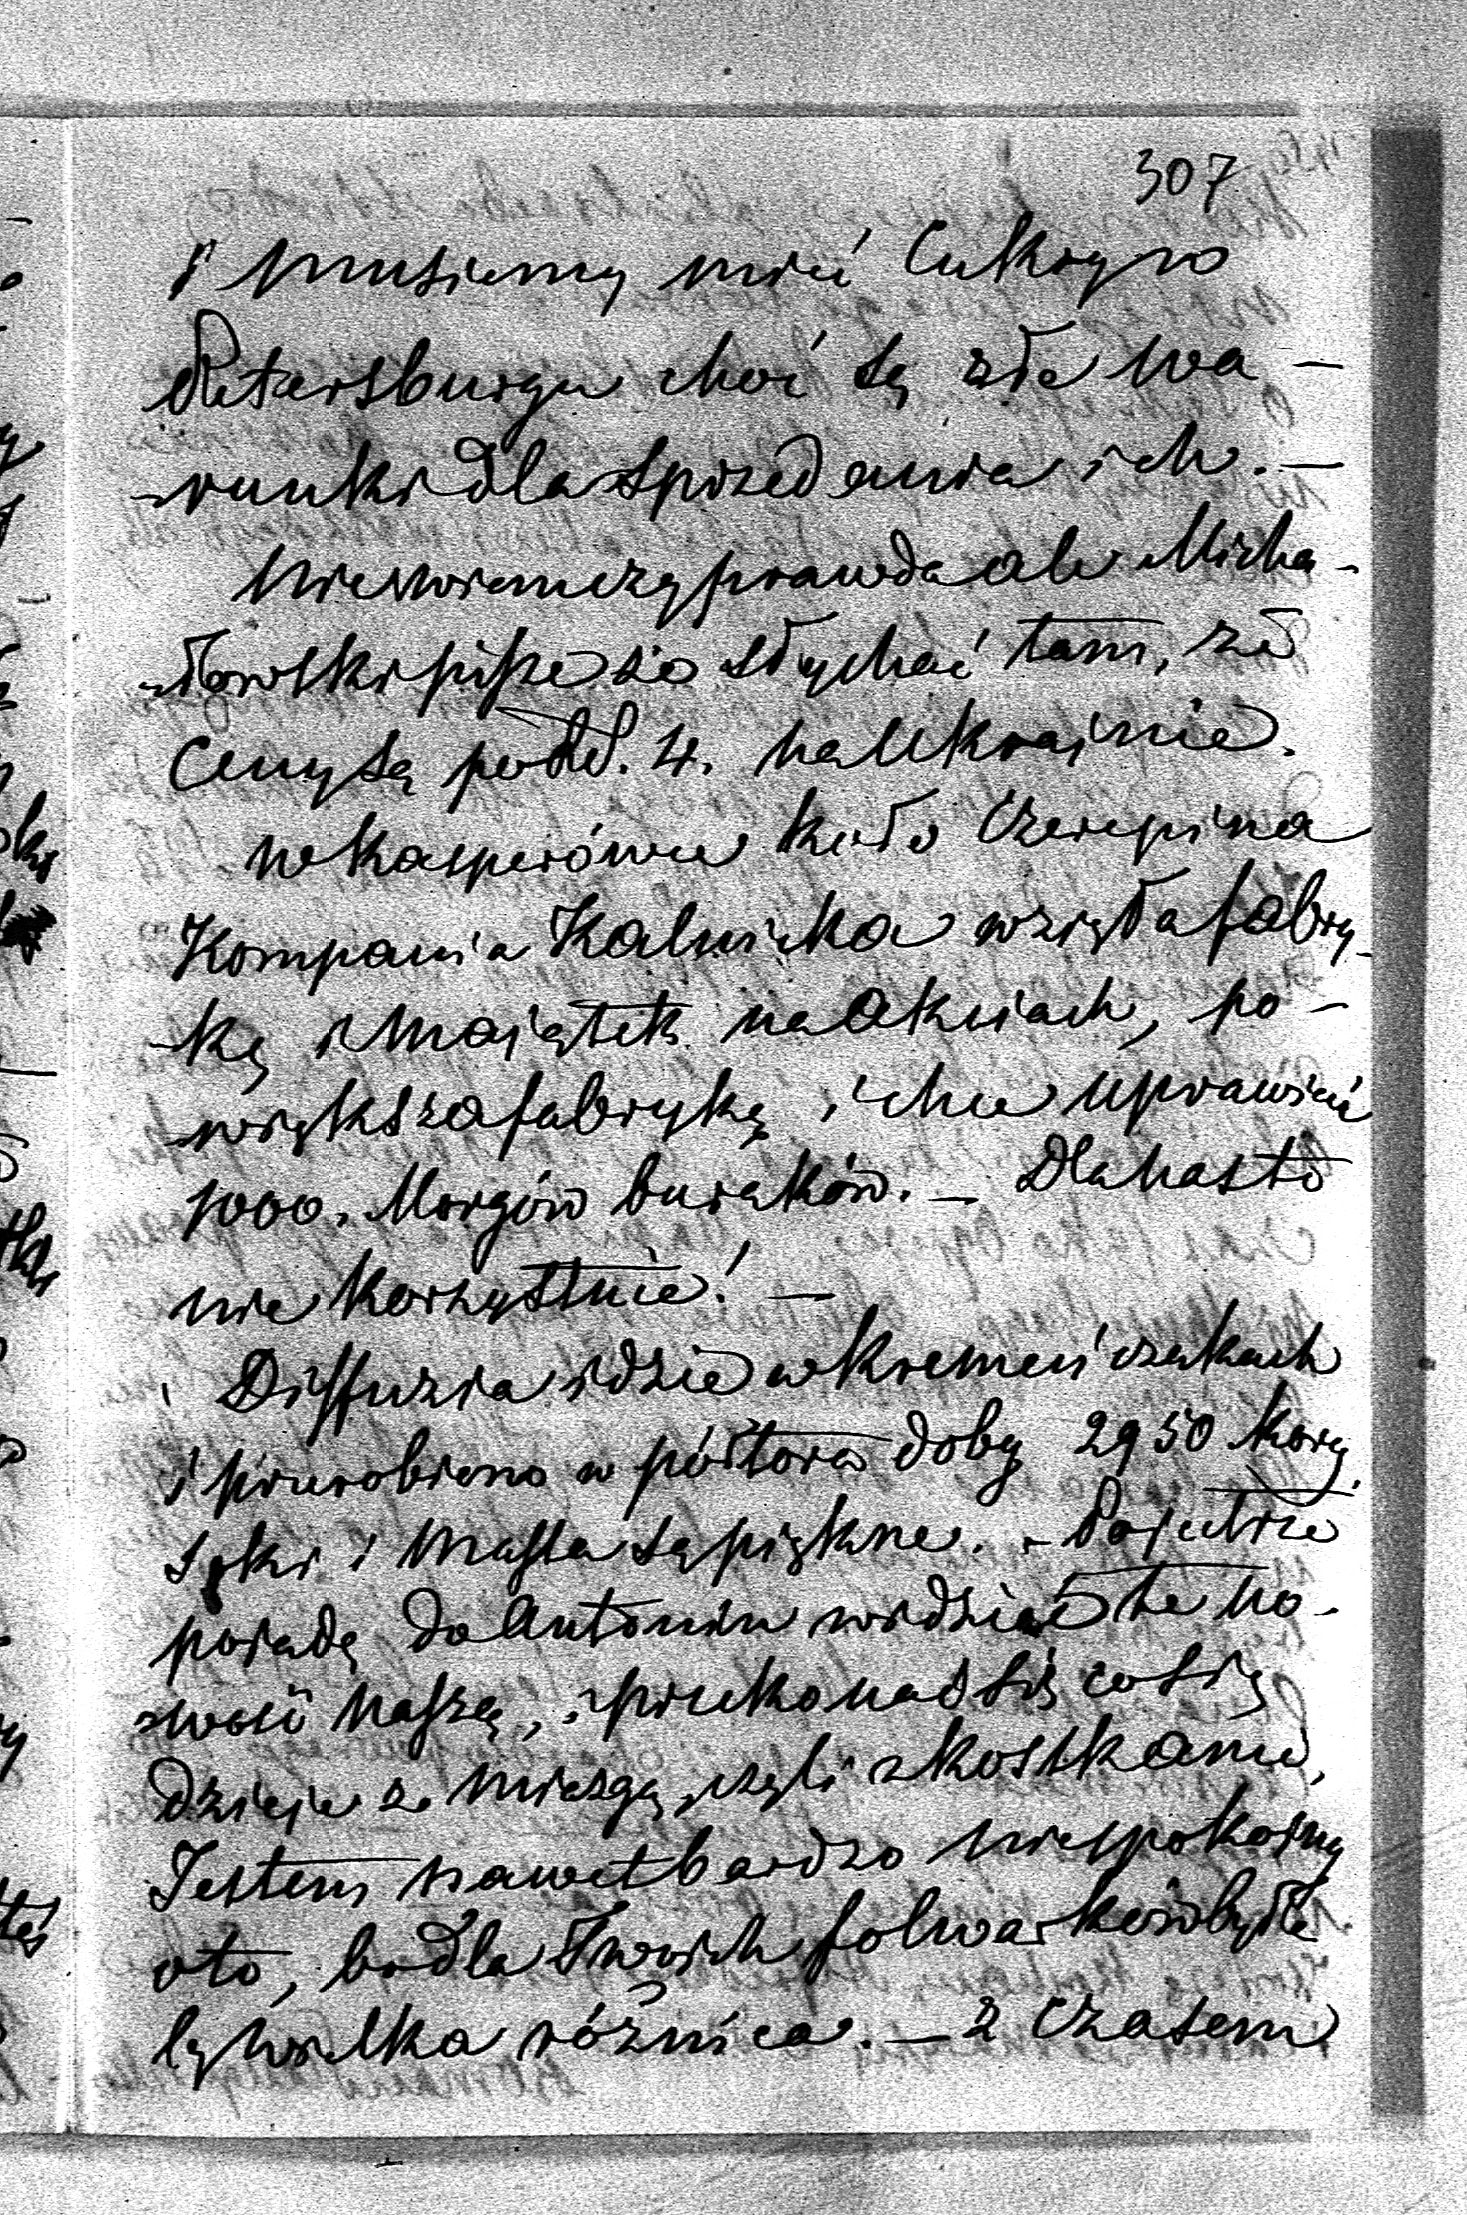 307
i musiemy mieć Cukry w
Petersburgu choć są złe wa-
runki dla sprzedania ich. —
Nie wiem czy prawda ale Micha-
łowski pisze że słychać tam, że
Ceny są po Rs. 4. na Ukrajnie.
w Kasperówce koło Czerepina
Kompania Kalnicka wzięła fabry-
kę i Majątek na akciach, po-
większa fabrykę i chce uprawiać
1000. Morgów buraków. — Dla nas to
nie korzystnie! —
Diffuzia idzie w Kremeńczukach
i przerobiono w półtora doby 2950 kory.
Soki i Massa są piękne. - Pojutrze
pojadę do Antonin widzieć tę no-
wość naszą, i przekonać się co się
dzieje z miezgą, czyli z kostkami,
Jestem nawet bardzo niespokojny
o to, bo dla Twoich folwarków była
by wielka różnica. — Z czasem